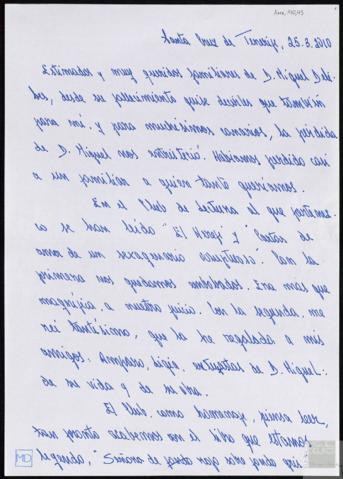 AMD, 116,43
Santa Cruz de Tenerife, 25.3.2010
Estimados y muy queridos familiares de D. Miguel Deli-
bes, desde su fallecimiento quise decirles que también
para mí, y para muchísimos canarios, la pérdida
de D. Miguel nos entristeció. Habíamos perdido casi
a un familiar a quien tanto queríamos.
En el Club de Lectura al que pertenez-
co se han leído "El Hereje" y "Cartas de
amor de un sexagenario voluptuoso". Con la
primera nos quedamos
a nuestro juicio. Con la segunda me
reí tantísimo, que la he regalado a mis
amigos. Amparo,
de su vida y de su obra.
El Club, como homenaje, piensa leer,
tan pronto acabemos con el libro que tenemos
"Señora de rojo sobre fondo gris"
MD